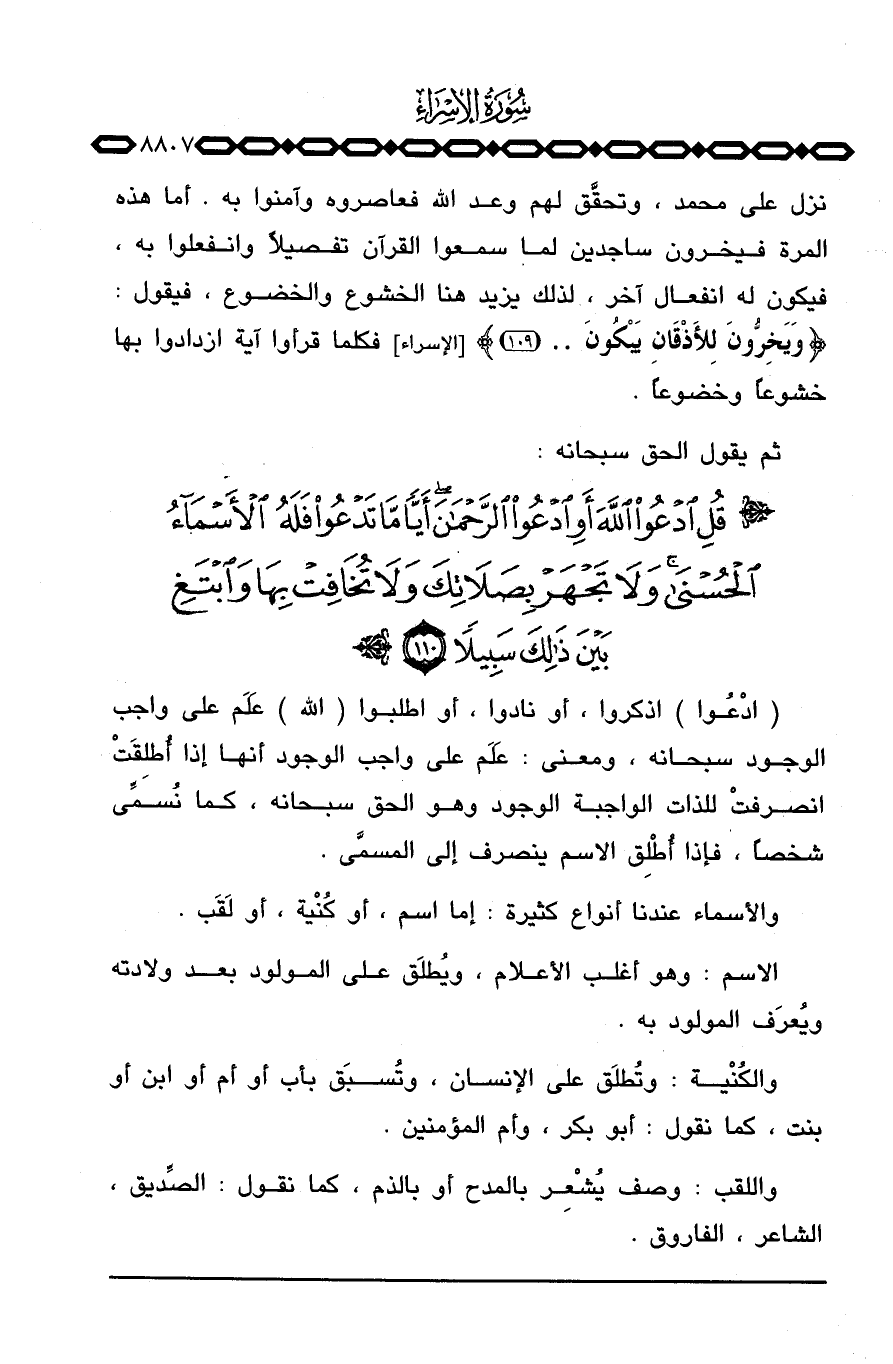 سُورَةُ الإِسْرَاءِ
٨٨٠٧
نزل على محمد ، وتحقَّق لهم وعد الله فعاصروه وآمنوا به . أما هذه
المرة فيخرون ساجدين لما سمعوا القرآن تفصيلاً وانفعلوا به ،
فيكون له انفعال آخر ، لذلك يزيد هنا الخشوع والخضوع ، فيقول :
﴿وَيَخِرُّونَ لِلأَذْقَانِ يَبْكُونَ .. (١٠٩)﴾ [الإسراء] فكلما قرأوا آية ازدادوا بها
خشوعاً وخضوعاً .
ثم يقول الحق سبحانه :
﴿ قُلِ ٱدۡعُواْ ٱللَّهَ أَوِ ٱدۡعُواْ ٱلرَّحۡمَٰنَۖ أَيّٗا مَّا تَدۡعُواْ فَلَهُ ٱلۡأَسۡمَآءُ
ٱلۡحُسۡنَىٰۚ وَلَا تَجۡهَرۡ بِصَلَاتِكَ وَلَا تُخَافِتۡ بِهَا وَٱبۡتَغِ
بَيۡنَ ذَٰلِكَ سَبِيلٗا ١١٠ ﴾
( ادْعُوا ) اذكروا ، أو نادوا ، أو اطلبوا ( الله ) علَم على واجب
الوجود سبحانه ، ومعنى : علَم على واجب الوجود أنها إذا أُطلِقَتْ
انصرفتْ للذات الواجبة الوجود وهو الحق سبحانه ، كما نُسمِّى
شخصاً ، فإذا أُطْلِق الاسم ينصرف إلى المسمَّى .
والأسماء عندنا أنواع كثيرة : إما اسم ، أو كُنْية ، أو لَقَب .
الاسم : وهو أغلب الأعلام ، ويُطلَق على المولود بعد ولادته
ويُعرَف المولود به .
والكُنْية : وتُطلَق على الإنسان ، وتُسبَق بأب أو أم أو ابن أو
بنت ، كما نقول : أبو بكر ، وأم المؤمنين .
واللقب : وصف يُشْعِر بالمدح أو بالذم ، كما نقول : الصِّديق ،
الشاعر ، الفاروق .